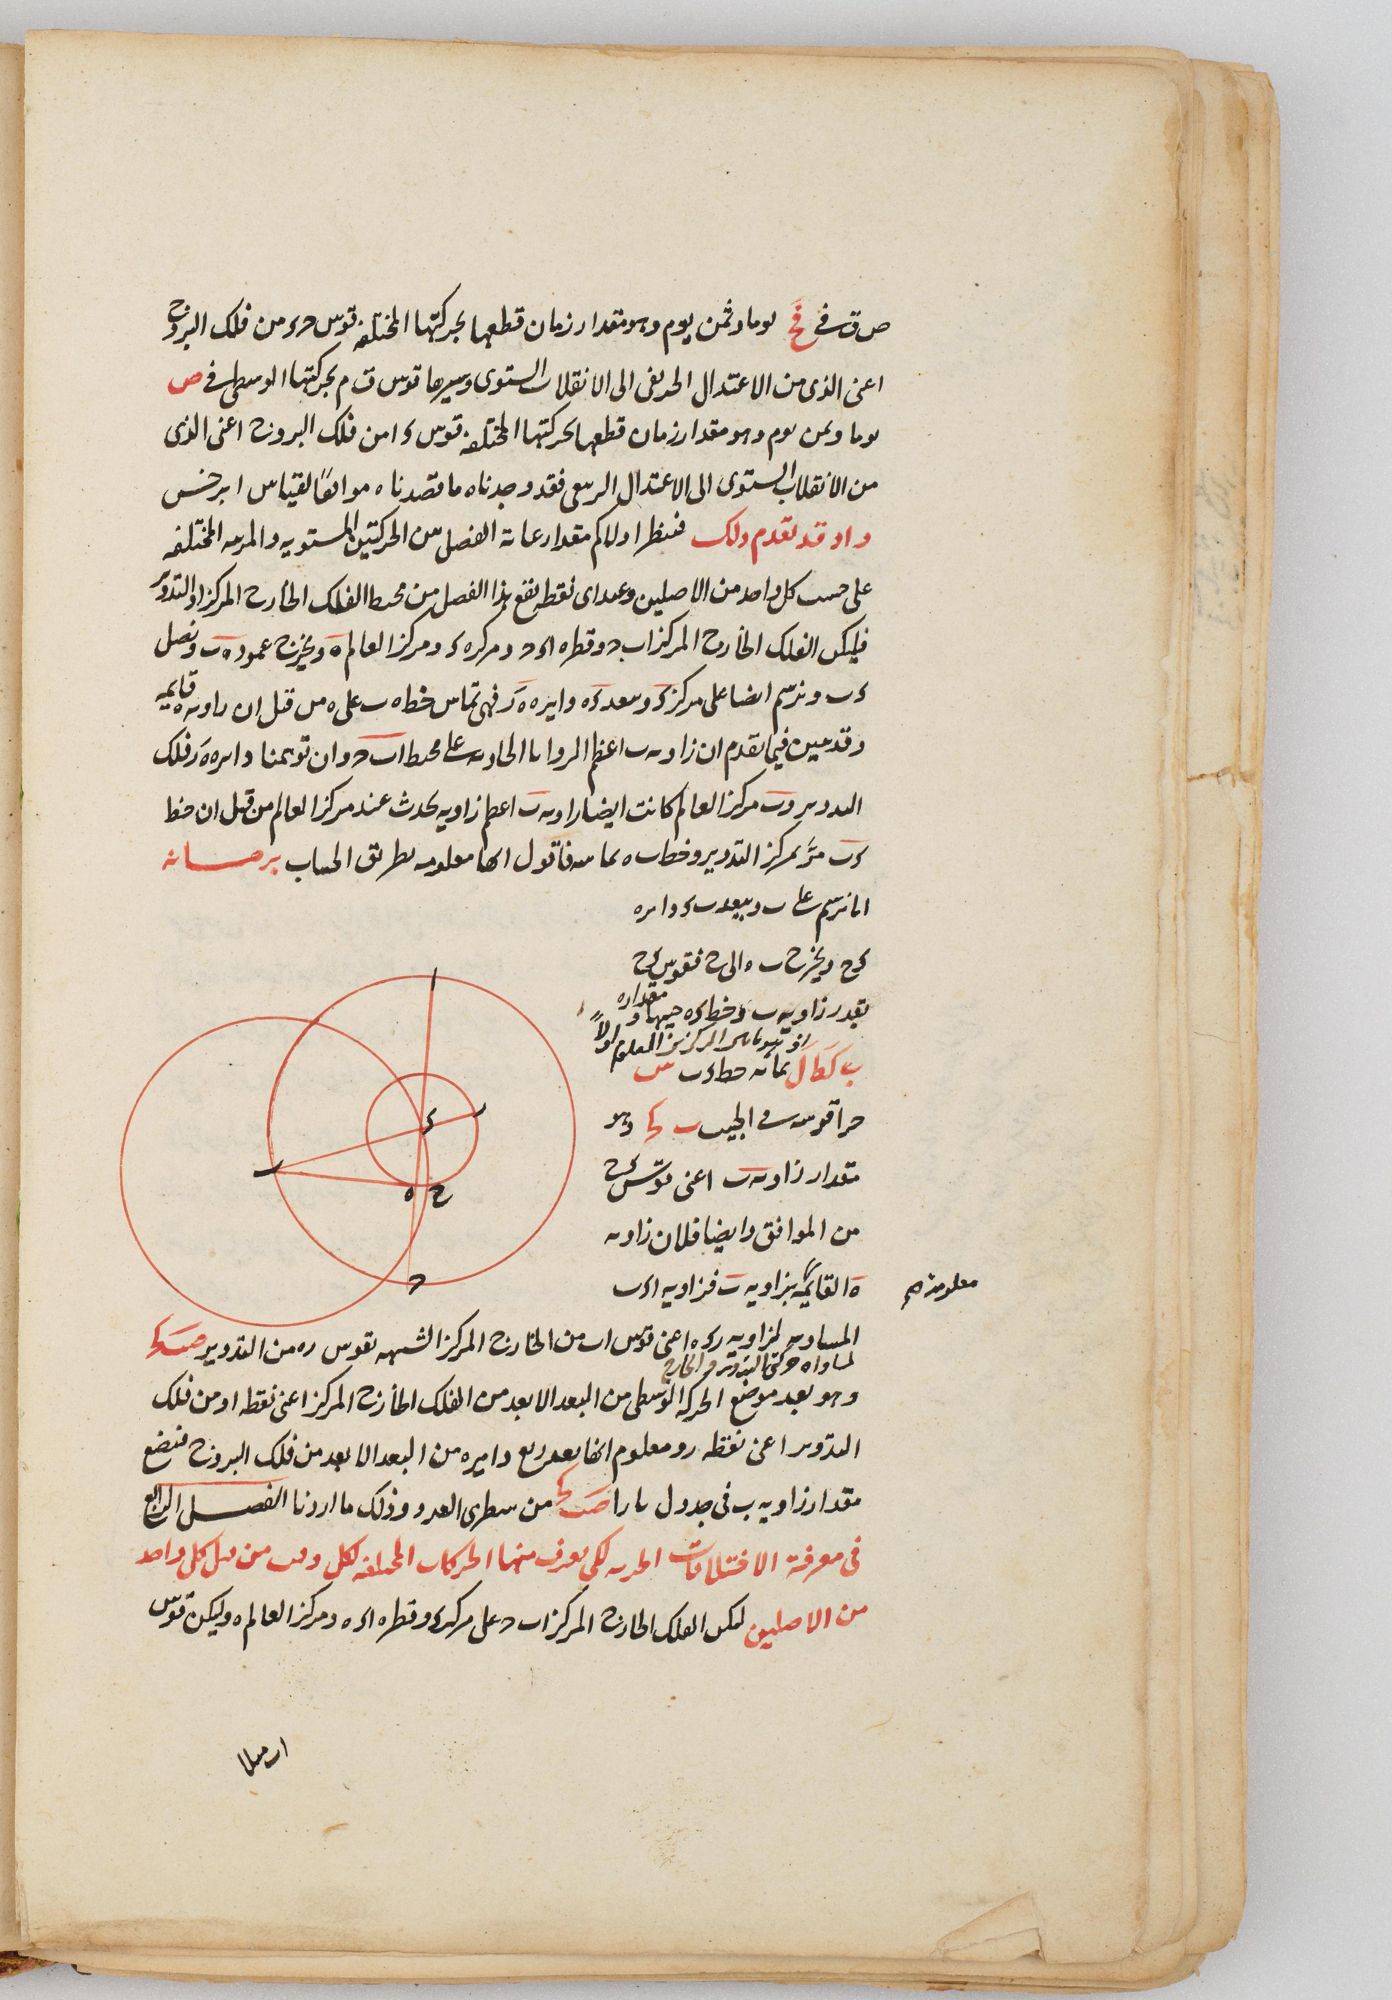 ص ق في فح يوما وثمن يوم وهو مقدار زمان قطعها بحركتها المختلفة قوس حء من فلك البروج
اعنى الذى من الاعتدال الخريفى الى الانقلاب الستوى وسيرها قوس ق م بحركتها الوسطى في ص
يوما وثمن يوم وهو مقدار زمان قطعها بحركتها المختلفة قوس ء ا من فلك البروج اعنى الذى
من الانقلاب الستوى الى الاعتدال الربيعى فقد وجدناه ما قصدناه موافقا لقياس ابرخس
واذ قد تقدم ذلك فننظر اولا كم مقدار غاية الفصل من الحركتين المستويه والمريه المختلفة
على حسب كل واحد من الاصلين وعند اى نقطه يقع هذا الفصل من محيط الفلك الخارج المركز او التدوير
فليكن الفلك الخارج المركز اب ح وقطره اء ح ومركزه ء ومركز العالم ه ويخرج عمود ه ب ونصل
ء ب ونرسم ايضا على مركز ء وببعد ء ه دايره ه ر فهى تماس خط ه ب على ه من قبل ان زاويه ه قايمه
وقد تبين فيما تقدم ان زاويه ب اعظم الزوايا الحادثه على محيط اب ح وان توهمنا دايره ه ر فلك
التدوير و ب مركز العالم كانت ايضا زاويه ب اعظم زاويه تحدث عند مركز العالم من قبل ان خط
ء ب مر بمركز التدوير وخط ب ه يماسه فاقول انها معلومه بطريق الحساب برهانه
انا نرسم على ب وببعد ب ء دايره
ء ح ويخرج ب ه الى ح فقوس ء ح
بقدر زاويه ب وخط ء ه جيبها ومقداره
المركزين المعلوم اولا
ب كط ل بما به خط ء ب س
جزا قوسه فى الجيب ب كح وهو
مقدار زاويه ب اعنى قوس ء ح
من الموافق وايضا فلان زاويه
ه القايمه بزاويه ب فزاويه ا ء ب
معلومه صح
المساويه لزاويه ر ء ه اعنى قوس اب من الخارج المركز الشبيهه بقوس ر ه من التدوير صب كح
لمساواه حركتى التدوير والخارج
وهو بعد موضع الحركه الوسطى من البعد الابعد من الفلك الخارج المركز اعنى نقطه ا ومن فلك
التدوير اعنى نقطه ر ومعلوم انها بعد ربع دايره من البعد الابعد من فلك البروج فنضع
مقدار زاويه ب فى جدول بازا صب كح من سطرى العدد وذلك ما اردنا الفصل الرابع
فى معرفة الاختلافات الجزييه لكى يعرف منها الحركات المختلفه لكل وقت من قبل كل واحد
من الاصلين ليكن الفلك الخارج المركز اب ح على مركز ء وقطره اء ه ومركز العالم ه وليكن قوس
ا
ر
ء
ب
ه
ح
ح